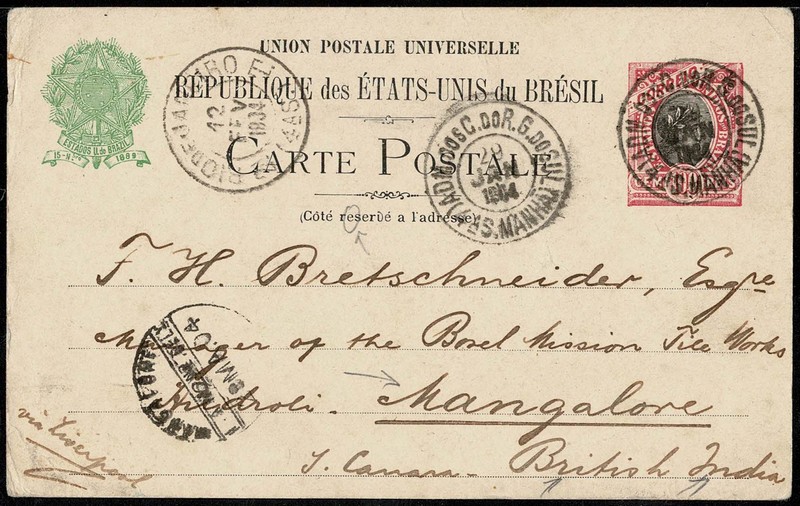 UNION POSTALE UNIVERSELLE
RÉPUBLIQUE des ÉTATS-UNIS du BRÉSIL
CARTE POSTALE
(Côté reservé a l'adresse)
ESTADOS U. do BRAZIL
15-Nbro 1889
RIO DE JANEIRO
12
FEV
1904
ADM. DOS C. DO R. G. DO SUL
29
JAN
1904
(5ªS. MANHÃ)
F. H. Bretschneider, Esqre
Manager of the Basel Mission Tile Works
Hudroli. Mangalore
S. Canara - British India
via Liverpool
MA 04